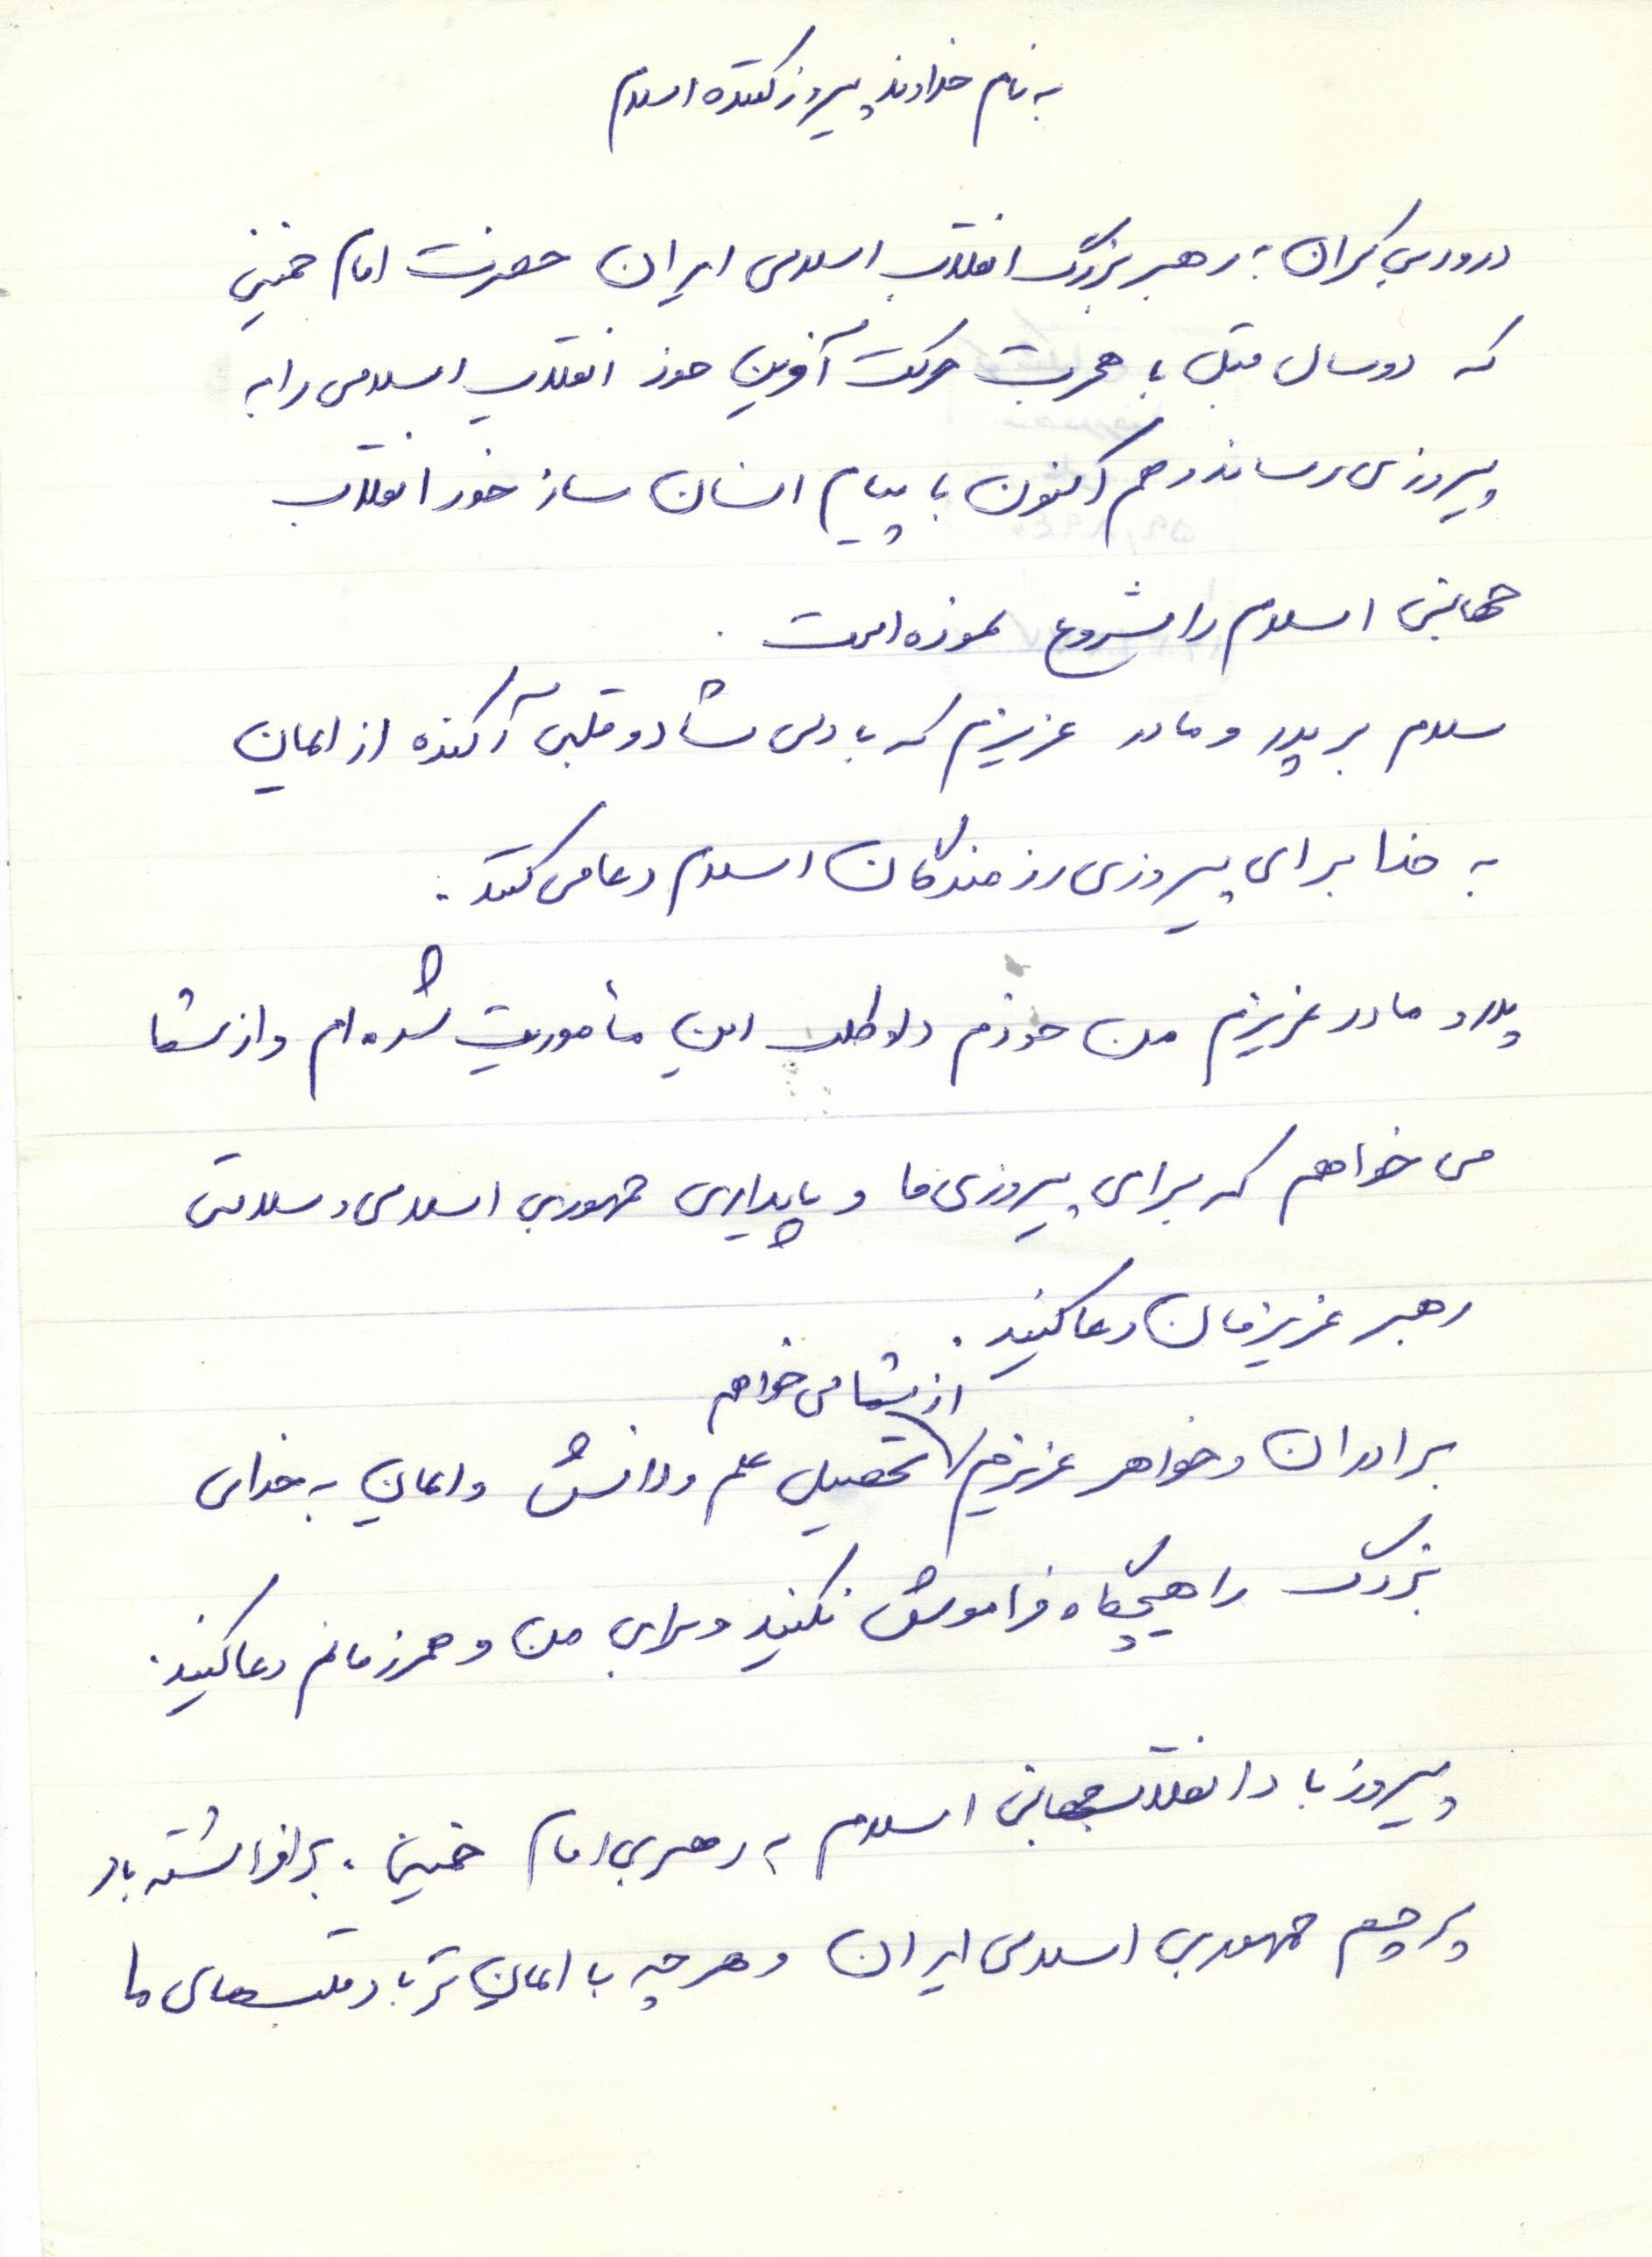 به نام خداوند پیروز کننده اسلام
درود بی کران به رهبر بزرگ انقلاب اسلامی ایران حضرت امام خمینی
که دو سال قبل با هجرت حرکت آفرین خود انقلاب اسلامی را به
پیروزی رساند و هم اکنون با پیام انسان ساز خود انقلاب
جهانی اسلام را شروع نموده است .
سلام بر پدر و مادر عزیزم که با دلی شاد و قلبی آکنده از ایمان
به خدا برای پیروزی رزمندگان اسلام دعا می کنند .
پدر و مادر عزیزم من خودم داوطلب این مأموریت شده ام و از شما
می خواهم که برای پیروزی ما و پایداری جمهوری اسلامی و سلامتی
رهبر عزیزمان دعا کنید .
از شما می خواهم
برادران و خواهر عزیزم تحصیل علم و دانش و ایمان به خدای
بزرگ را هیچگاه فراموش نکنید و برای من و همرزمانم دعا کنید .
پیروز باد انقلاب جهانی اسلام به رهبری امام خمینی . برافراشته باد
پرچم جمهوری اسلامی ایران و هر چه با ایمان تر باد قلب های ما